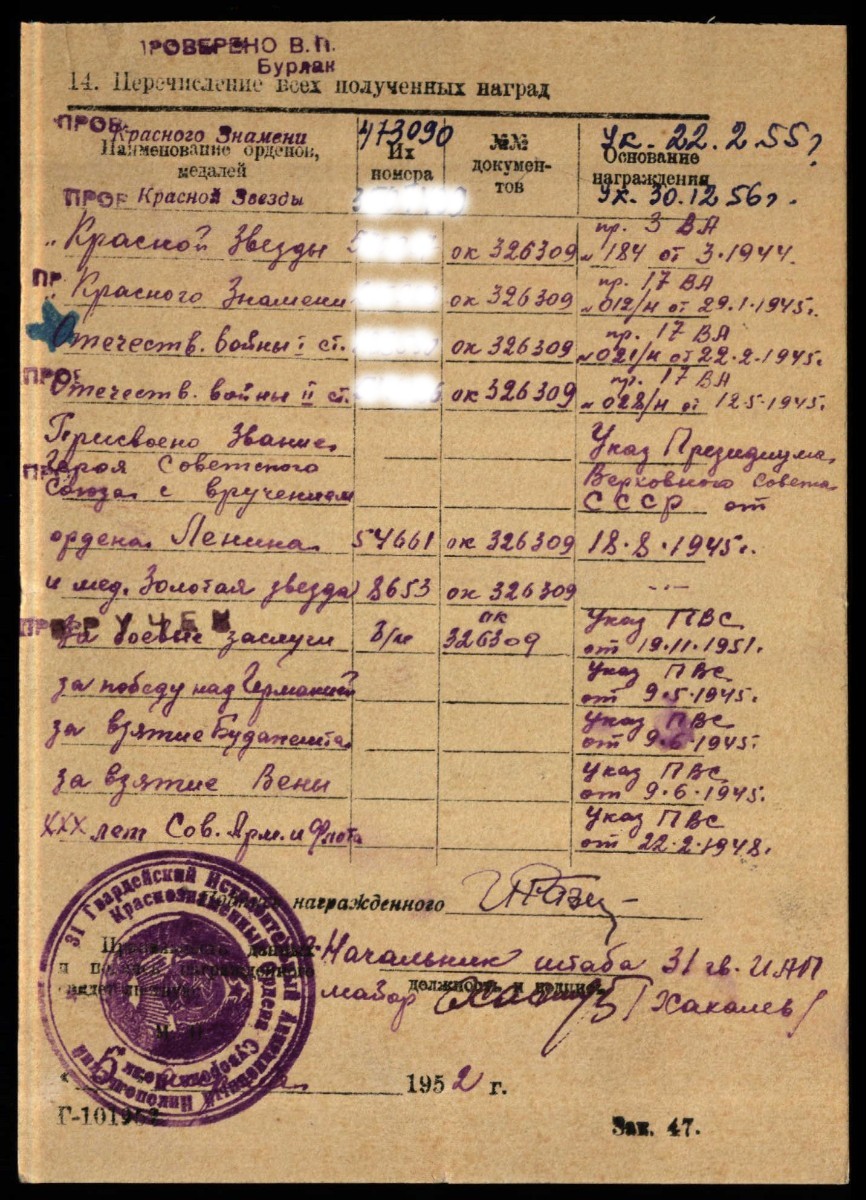 ПРОВЕРЕНО В. П.
Бурлак
14. Перечисление всех полученных наград
ПРОВ. Красного Знамени 473090 Ук. 22.2.55г
Наименование орденов, медалей
Их номера
№№ документов
Основание награждения
ПРОВ Красной Звезды Ук. 30.12.56г.
" Красной Звезды ок 326309 пр. 3 ВА
№ 184 от 3.1944.
ПР
" Красного Знамени ок 326309 пр. 17 ВА
№ 012/н от 29.1.1945г.
Отечеств. войны I ст. ок 326309 пр. 17 ВА
№ 021/н от 22.2.1945г.
ПРОВ
Отечеств. войны II ст. ок 326309 пр. 17 ВА
№ 028/н от 12.5.1945г.
Присвоено звание
Героя Советского
Союза с вручением
Указ Президиума
Верховного Совета
СССР от
ордена Ленина 54661 ок 326309 18.8.1945г.
и мед. Золотая звезда 8653 ок 326309 -"-
ВРУЧЕН
За боевые заслуги б/н ок 326309 Указ ПВС
от 19.11.1951.
за победу над Германией Указ ПВС
от 9.5.1945г.
за взятие Будапешта Указ ПВС
от 9.6.1945г.
за взятие Вены Указ ПВС
от 9.6.1945г.
XXX лет Сов. Арм. и Флота Указ ПВС
от 22.2.1948г.
Подпись награжденного
Правильность данных
и подпись награжденного
свидетельствую
Начальник штаба 31 гв. ИАП
должность и подпись
майор /Хакалев/
М. П.
31 Гвардейский Истребительный Авиационный Никопольский
Краснознаменный ордена Суворова Полк
1952 г.
Г-101952
Зак. 47.